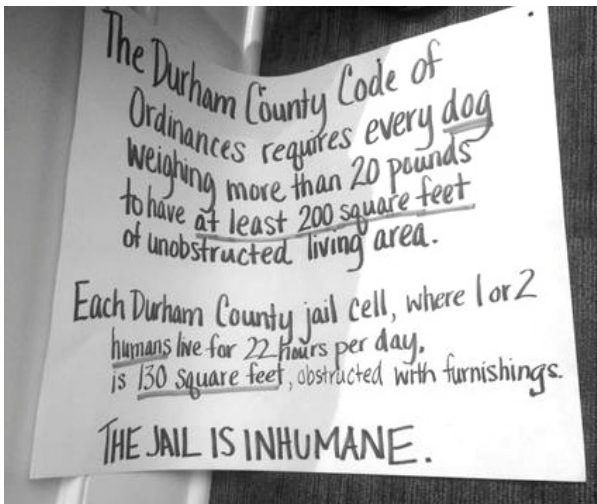 The Durham County Code of
Ordinances requires every dog
weighing more than 20 pounds
to have at least 200 square feet
of unobstructed living area.
Each Durham County jail cell, where 1 or 2
humans live for 22 hours per day,
is 130 square feet, obstructed with furnishings.
THE JAIL IS INHUMANE.